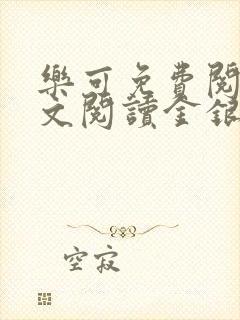 樂可免費閱
文閱讀金銀
空寂